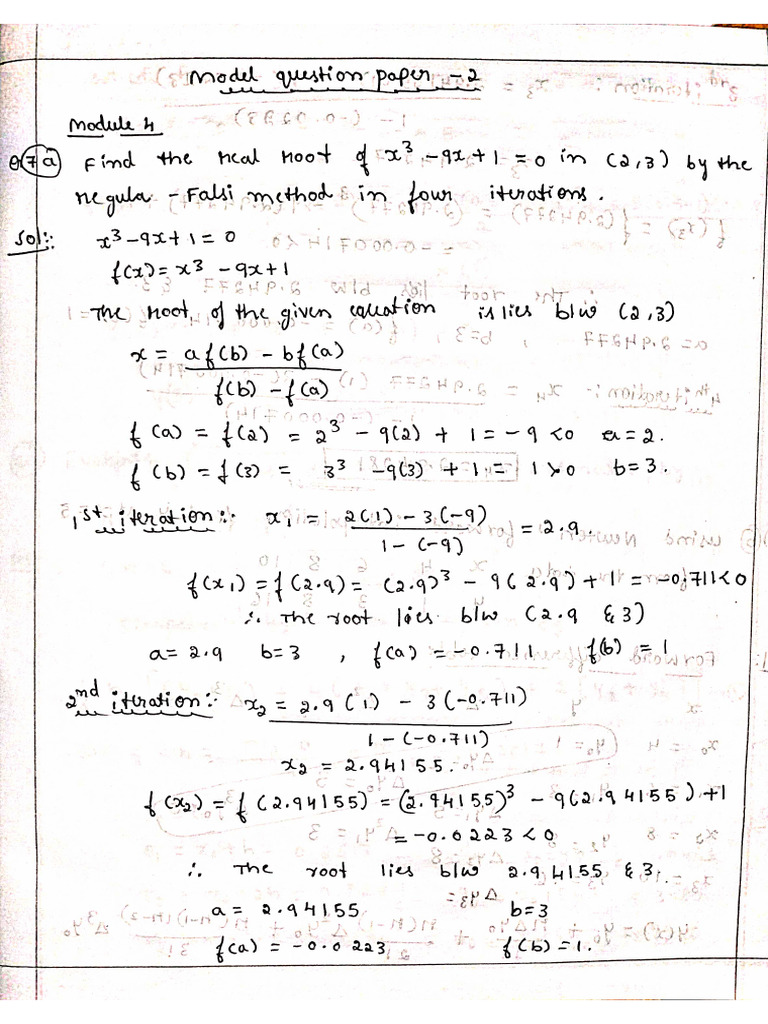 Model question paper - 2
Module 4
Q7 a) Find the real root of x³ - 9x + 1 = 0 in (2,3) by the
regula - Falsi method in four iterations.
Sol:- x³ - 9x + 1 = 0
f(x) = x³ - 9x + 1
The root, of the given equation is lies b/w (2,3)
x = af(b) - bf(a) / f(b) - f(a)
f(a) = f(2) = 2³ - 9(2) + 1 = -9 < 0 a = 2.
f(b) = f(3) = 3³ - 9(3) + 1 = 1 > 0 b = 3.
1st iteration:- x₁ = 2(1) - 3(-9) / 1 - (-9) = 2.9.
f(x₁) = f(2.9) = (2.9)³ - 9(2.9) + 1 = -0.711 < 0
∴ The root lies b/w (2.9 & 3)
a = 2.9 b = 3 , f(a) = -0.711 f(b) = 1
2nd iteration:- x₂ = 2.9(1) - 3(-0.711) / 1 - (-0.711)
x₂ = 2.94155.
f(x₂) = f(2.94155) = (2.94155)³ - 9(2.94155) + 1
= -0.0223 < 0
∴ The root lies b/w 2.94155 & 3.
a = 2.94155 b = 3
f(a) = -0.0223 f(b) = 1.